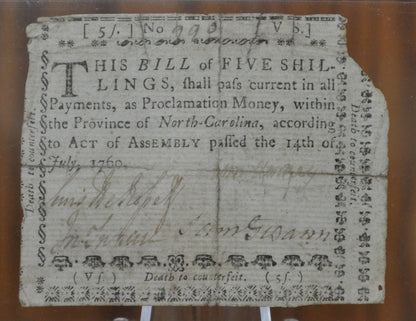 [ 5ſ. ] No 993 [ V S. ]
THIS BILL of FIVE SHIL-
LINGS, ſhall paſs current in all
Payments, as Proclamation Money, within
the Province of North-Carolina, according
to ACT of ASSEMBLY paſſed the 14th of
July, 1760.
John
( Vſ ) Death to counterfeit. ( 5ſ. )
Death to counterfeit.
Death to counterfeit.